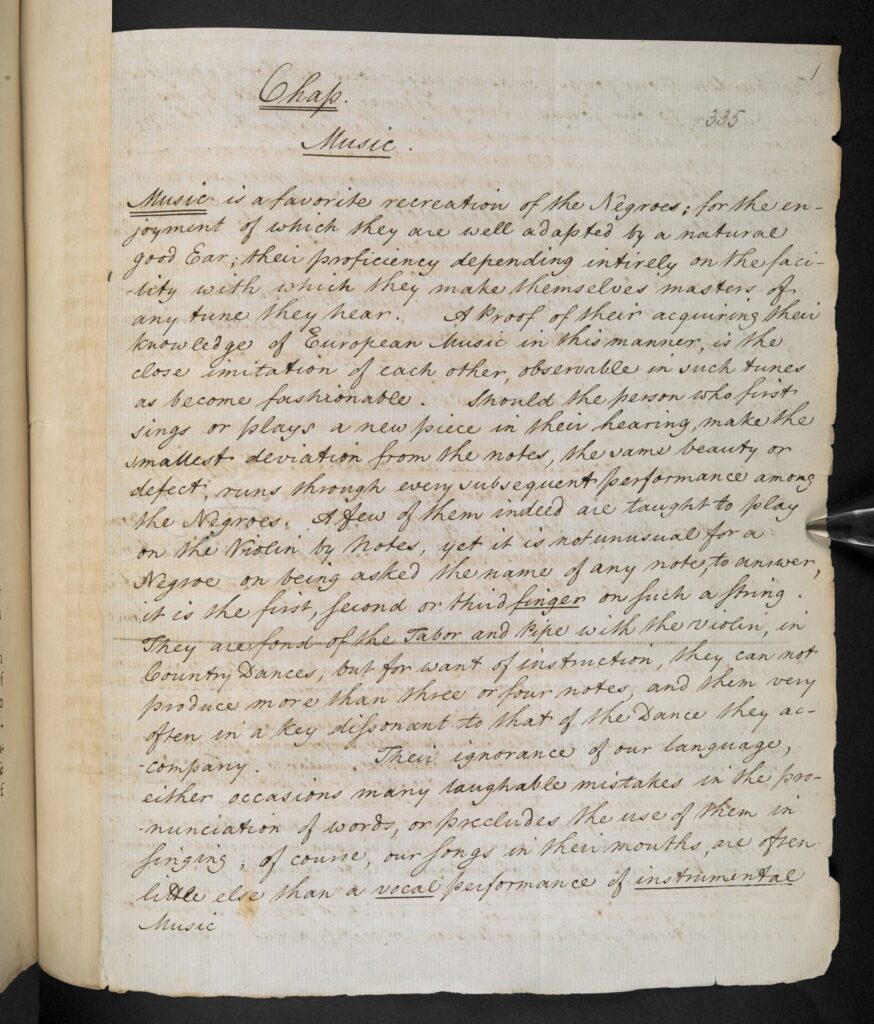 1
335
Chap.
Music.
Music is a favorite recreation of the Negroes; for the en-
joyment of which they are well adapted by a natural
good Ear; their proficiency depending intirely on the faci-
-lity with which they make themselves masters of
any tune they hear. A Proof of their acquiring their
knowledge of European Music in this manner, is the
close imitation of each other, observable in such tunes
as become fashionable. Should the person who first
sings or plays a new piece in their hearing, make the
smallest deviation from the notes, the same beauty or
defect, runs through every subsequent performance among
the Negroes. A few of them indeed are taught to play
on the Violin by Notes, yet it is not unusual for a
Negroe on being asked the name of any note, to answer,
it is the first, second or third finger on such a string.
They are fond of the Tabor and Pipe with the violin, in
Country Dances, but for want of instruction, they can not
produce more than three or four notes, and them very
often in a key dissonant to that of the Dance they ac-
-company. Their ignorance of our language,
either occasions many laughable mistakes in the pro-
-nunciation of words, or precludes the use of them in
singing; of course, our songs in their mouths, are often
little else than a vocal performance of instrumental
Music